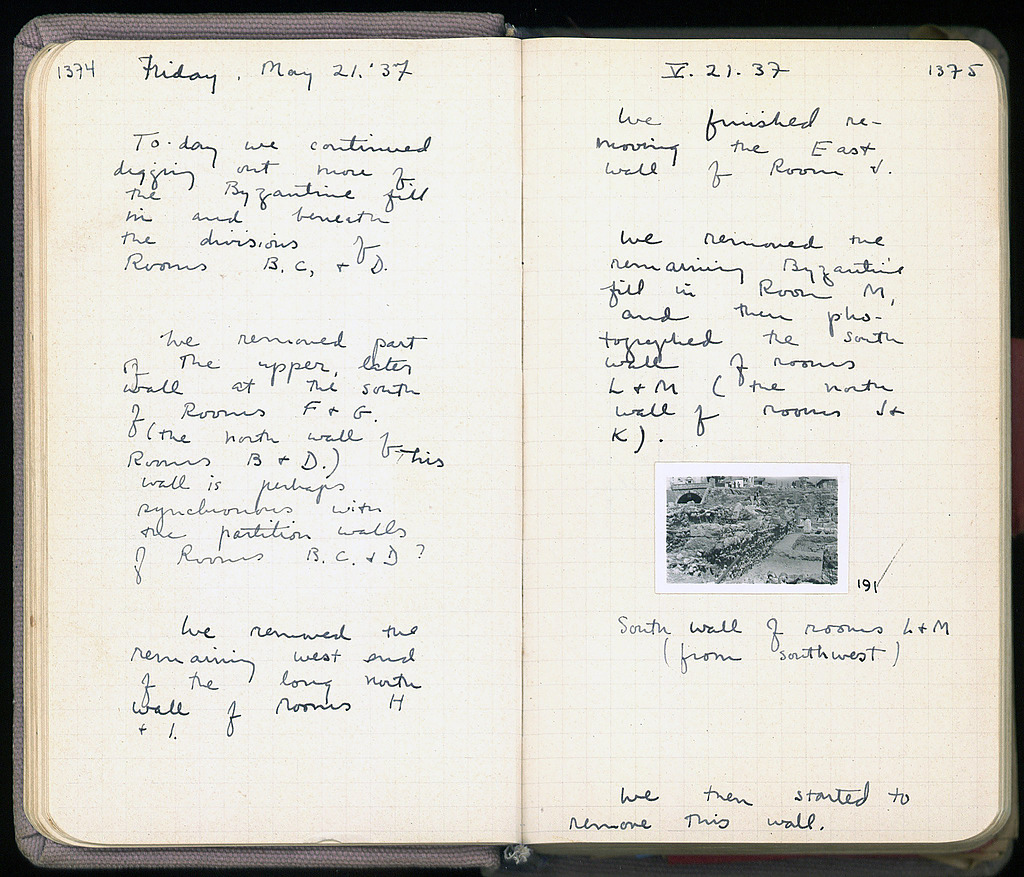 1374 Friday, May 21. '37
To-day we continued
digging out more of
the Byzantine fill
in and beneath
the divisions of
Rooms B. C, + D.
We removed part
of the upper, later
wall at the south
of Rooms F + G.
(the north wall of
Rooms B + D.) This
wall is perhaps
synchronous with
the partition walls
of Rooms B. C. + D ?
We removed the
remaining west end
of the long north
wall of rooms H
+ I.
V. 21. 37 1375
We finished re-
moving the East
wall of Room J.
We removed the
remaining Byzantine
fill in Room M,
and then pho-
tographed the south
wall of rooms
L + M (the north
wall of rooms J +
K).
191
South wall of rooms L + M
(from southwest)
We then started to
remove this wall.